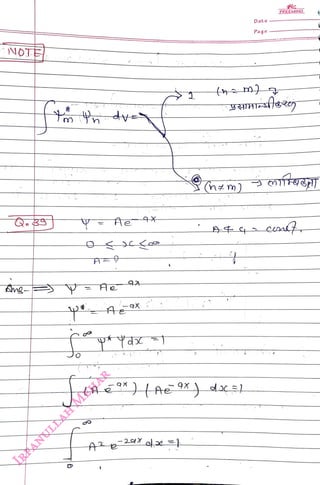 Date
Page
NOTE
∫ ψ*m ψn dv =
1 (n = m) → प्रसामान्यीकरण
0 (n ≠ m) → लाम्बिकता
Q.39 ψ = Ae^-ax
0 ≤ x ≤ ∞
A = ?
A & a = const.
Ans- ⟹ ψ = Ae^-ax
ψ* = Ae^-ax
∫₀^∞ ψ* ψ dx = 1
∫ (Ae^-ax) (Ae^-ax) dx = 1
∫₀^∞ A² e^-2ax dx = 1
IRFANULLAH MEHAR